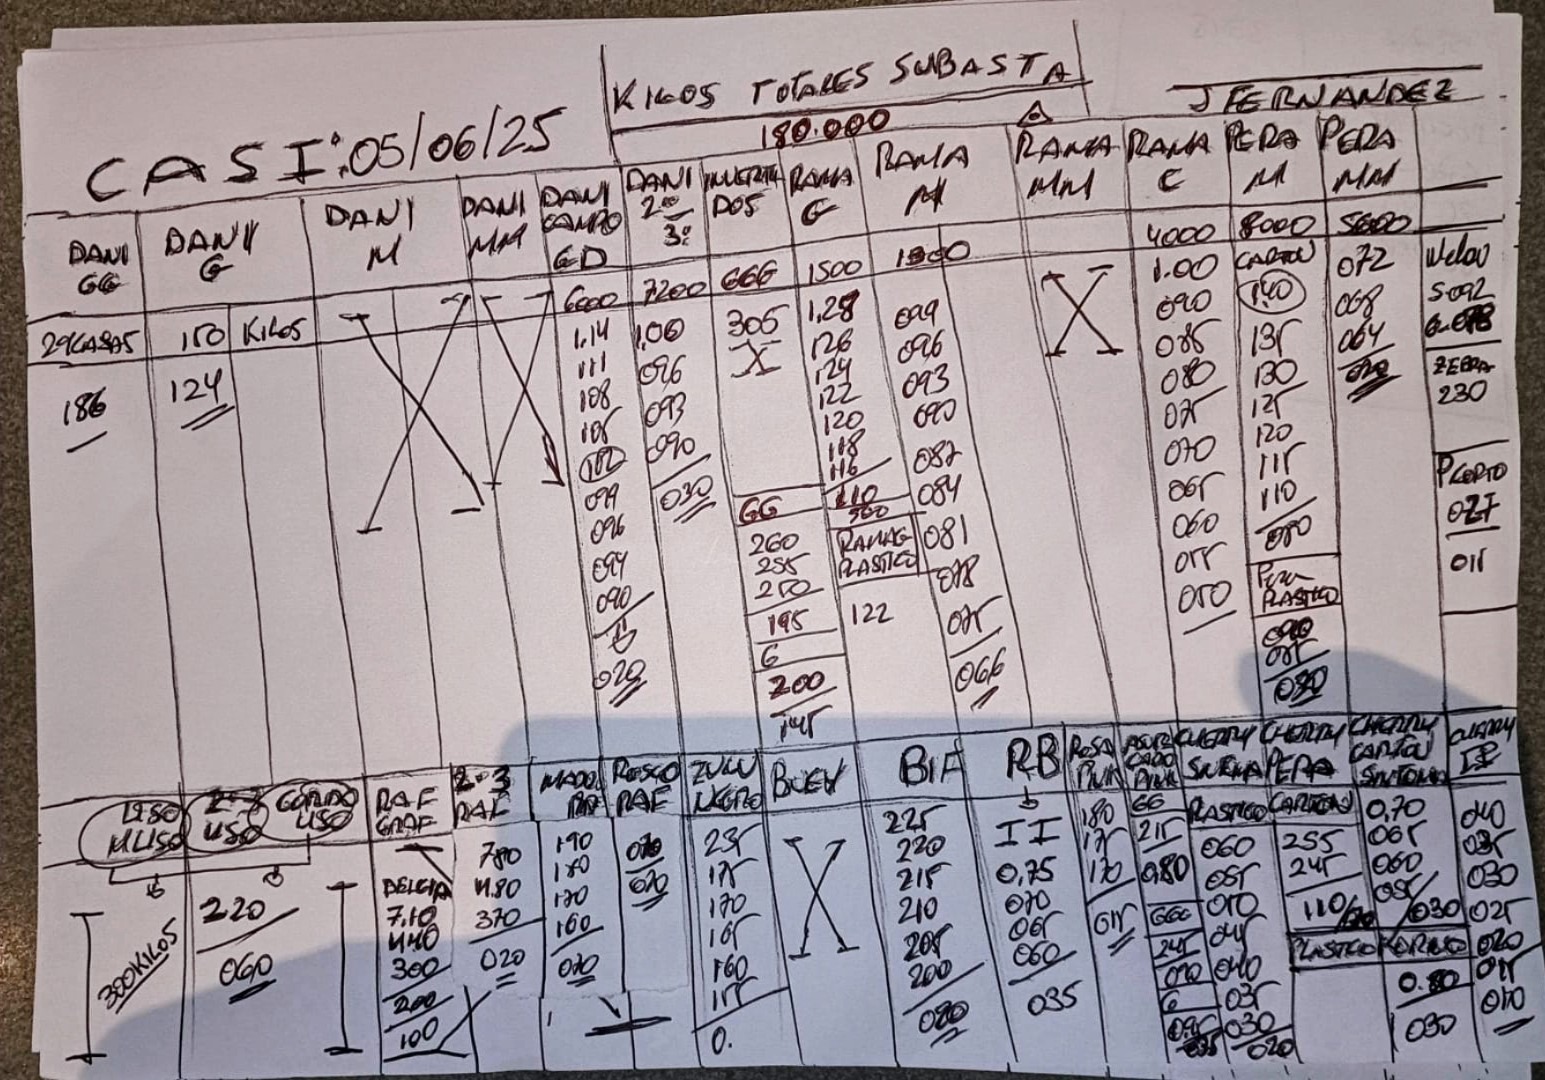 KILOS TOTALES SUBASTA
180.000
J FERNANDEZ
CASI: 05/06/25
DANI GG
29 CAJAS
186
DANI G
150 KILOS
124
DANI M
DANI MM
DANI CAMPO GD
6000
1,14
111
108
105
102
099
096
094
090
020
DANI 2º 3º
7200
1,00
096
093
090
030
INVERTIDOS
GGG
305
X
GG
260
255
250
195
G
200
145
RAMA G
1500
1,28
126
124
122
120
118
116
110
RAMA G PLASTICO
122
RAMA M
099
096
093
090
087
084
081
078
075
066
RAMA MM
RAMA C
4000
1.00
090
085
080
075
070
065
060
055
050
PERA M
8000
CARTON
140
135
130
125
120
115
110
080
PERA PLASTICO
090
085
080
PERA MM
5600
072
068
064
MELON
S-092
ZEBRA
230
P CORTO
027
015
LISO MLISO
300 KILOS
2-3 LISO
220
060
CORTADO LISO
RAF GRAF
DELGIA
7,10
440
300
200
100
2-3 RAF
780
480
370
020
190
180
170
160
070
ROSCO RAF
070
ZULU NEGRO
235
175
170
165
160
155
0.
BUEY
BIF
225
220
215
210
205
200
080
RB
II
0,75
070
065
060
035
ROSA PINK
180
175
170
015
ASURCADO PINK
GG
215
080
GGG
245
G
095
CHERRY SURMA
PLASTICO
060
055
050
045
040
035
030
020
CHERRY PERA
CARTON
255
245
PLASTICO
CHERRY CARTON SINTOMA
0,70
065
060
055/030
030
CHERRY
040
035
030
025
020
015
010